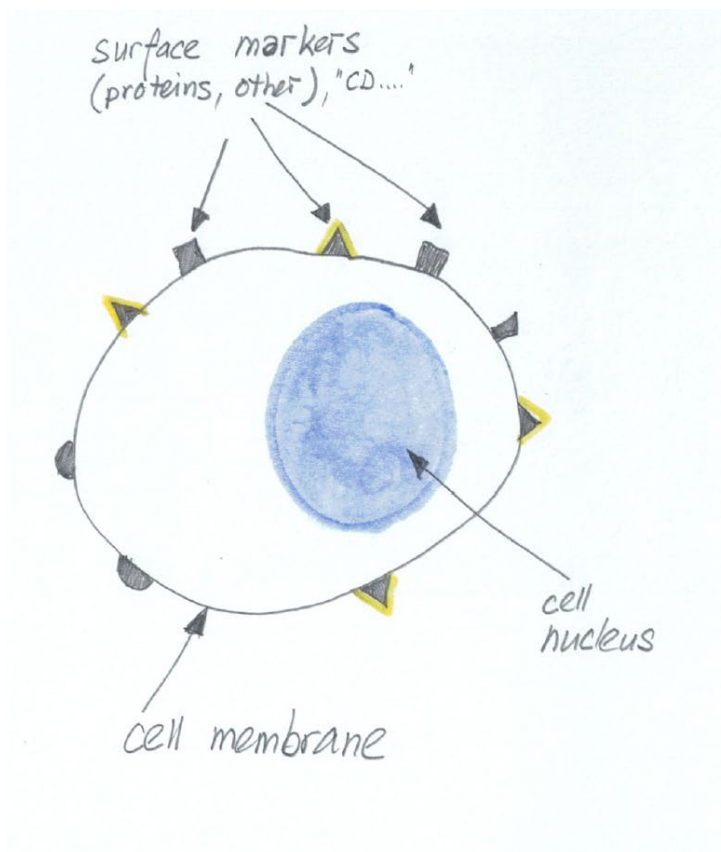 surface markers
(proteins, other), "CD...."
cell
nucleus
cell membrane